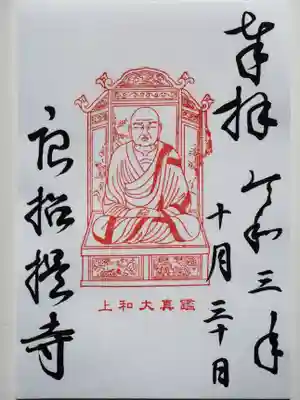 奉拝
令和三年
十月三十日
鑑真大和上
唐招提寺